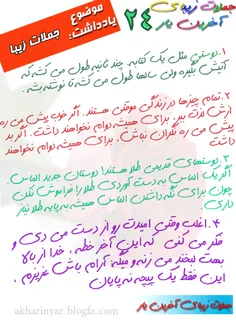 جملات زیبای
آخرین یار
۲۴
موضوع
یادداشت:
جملات زیبا
۱.دوستی مثل یک کتابه. چند ثانیه طول می کشه که
آتیش بگیره ولی سالها طول می کشه تا نوشته بشه.
۲.تمام چیزها در زندگی موقتی هستند. اگر خوب پیش می ره
ازش لذت ببر، برای همیشه دوام نخواهند داشت. اگر بد
پیش می ره نگران نباش، برای همیشه دوام نخواهند
داشت.
۳.دوستهای قدیمی طلا هستند! دوستان جدید الماس.
اگر یک الماس به دست آوردی طلا را فراموش نکن
چون برای نگه داشتن الماس همیشه به پایه طلا نیاز
داری.
۴.اغلب وقتی امیدت رو از دست می دی و
فکر می کنی که این آخر خطه ، خدا از بالا
بهت لبخند می زنه و میگه آرام باش عزیزم ،
این فقط یک پیچه نه پایان
akharinyar.blogfa.com
جملات زیبای آخرین یار